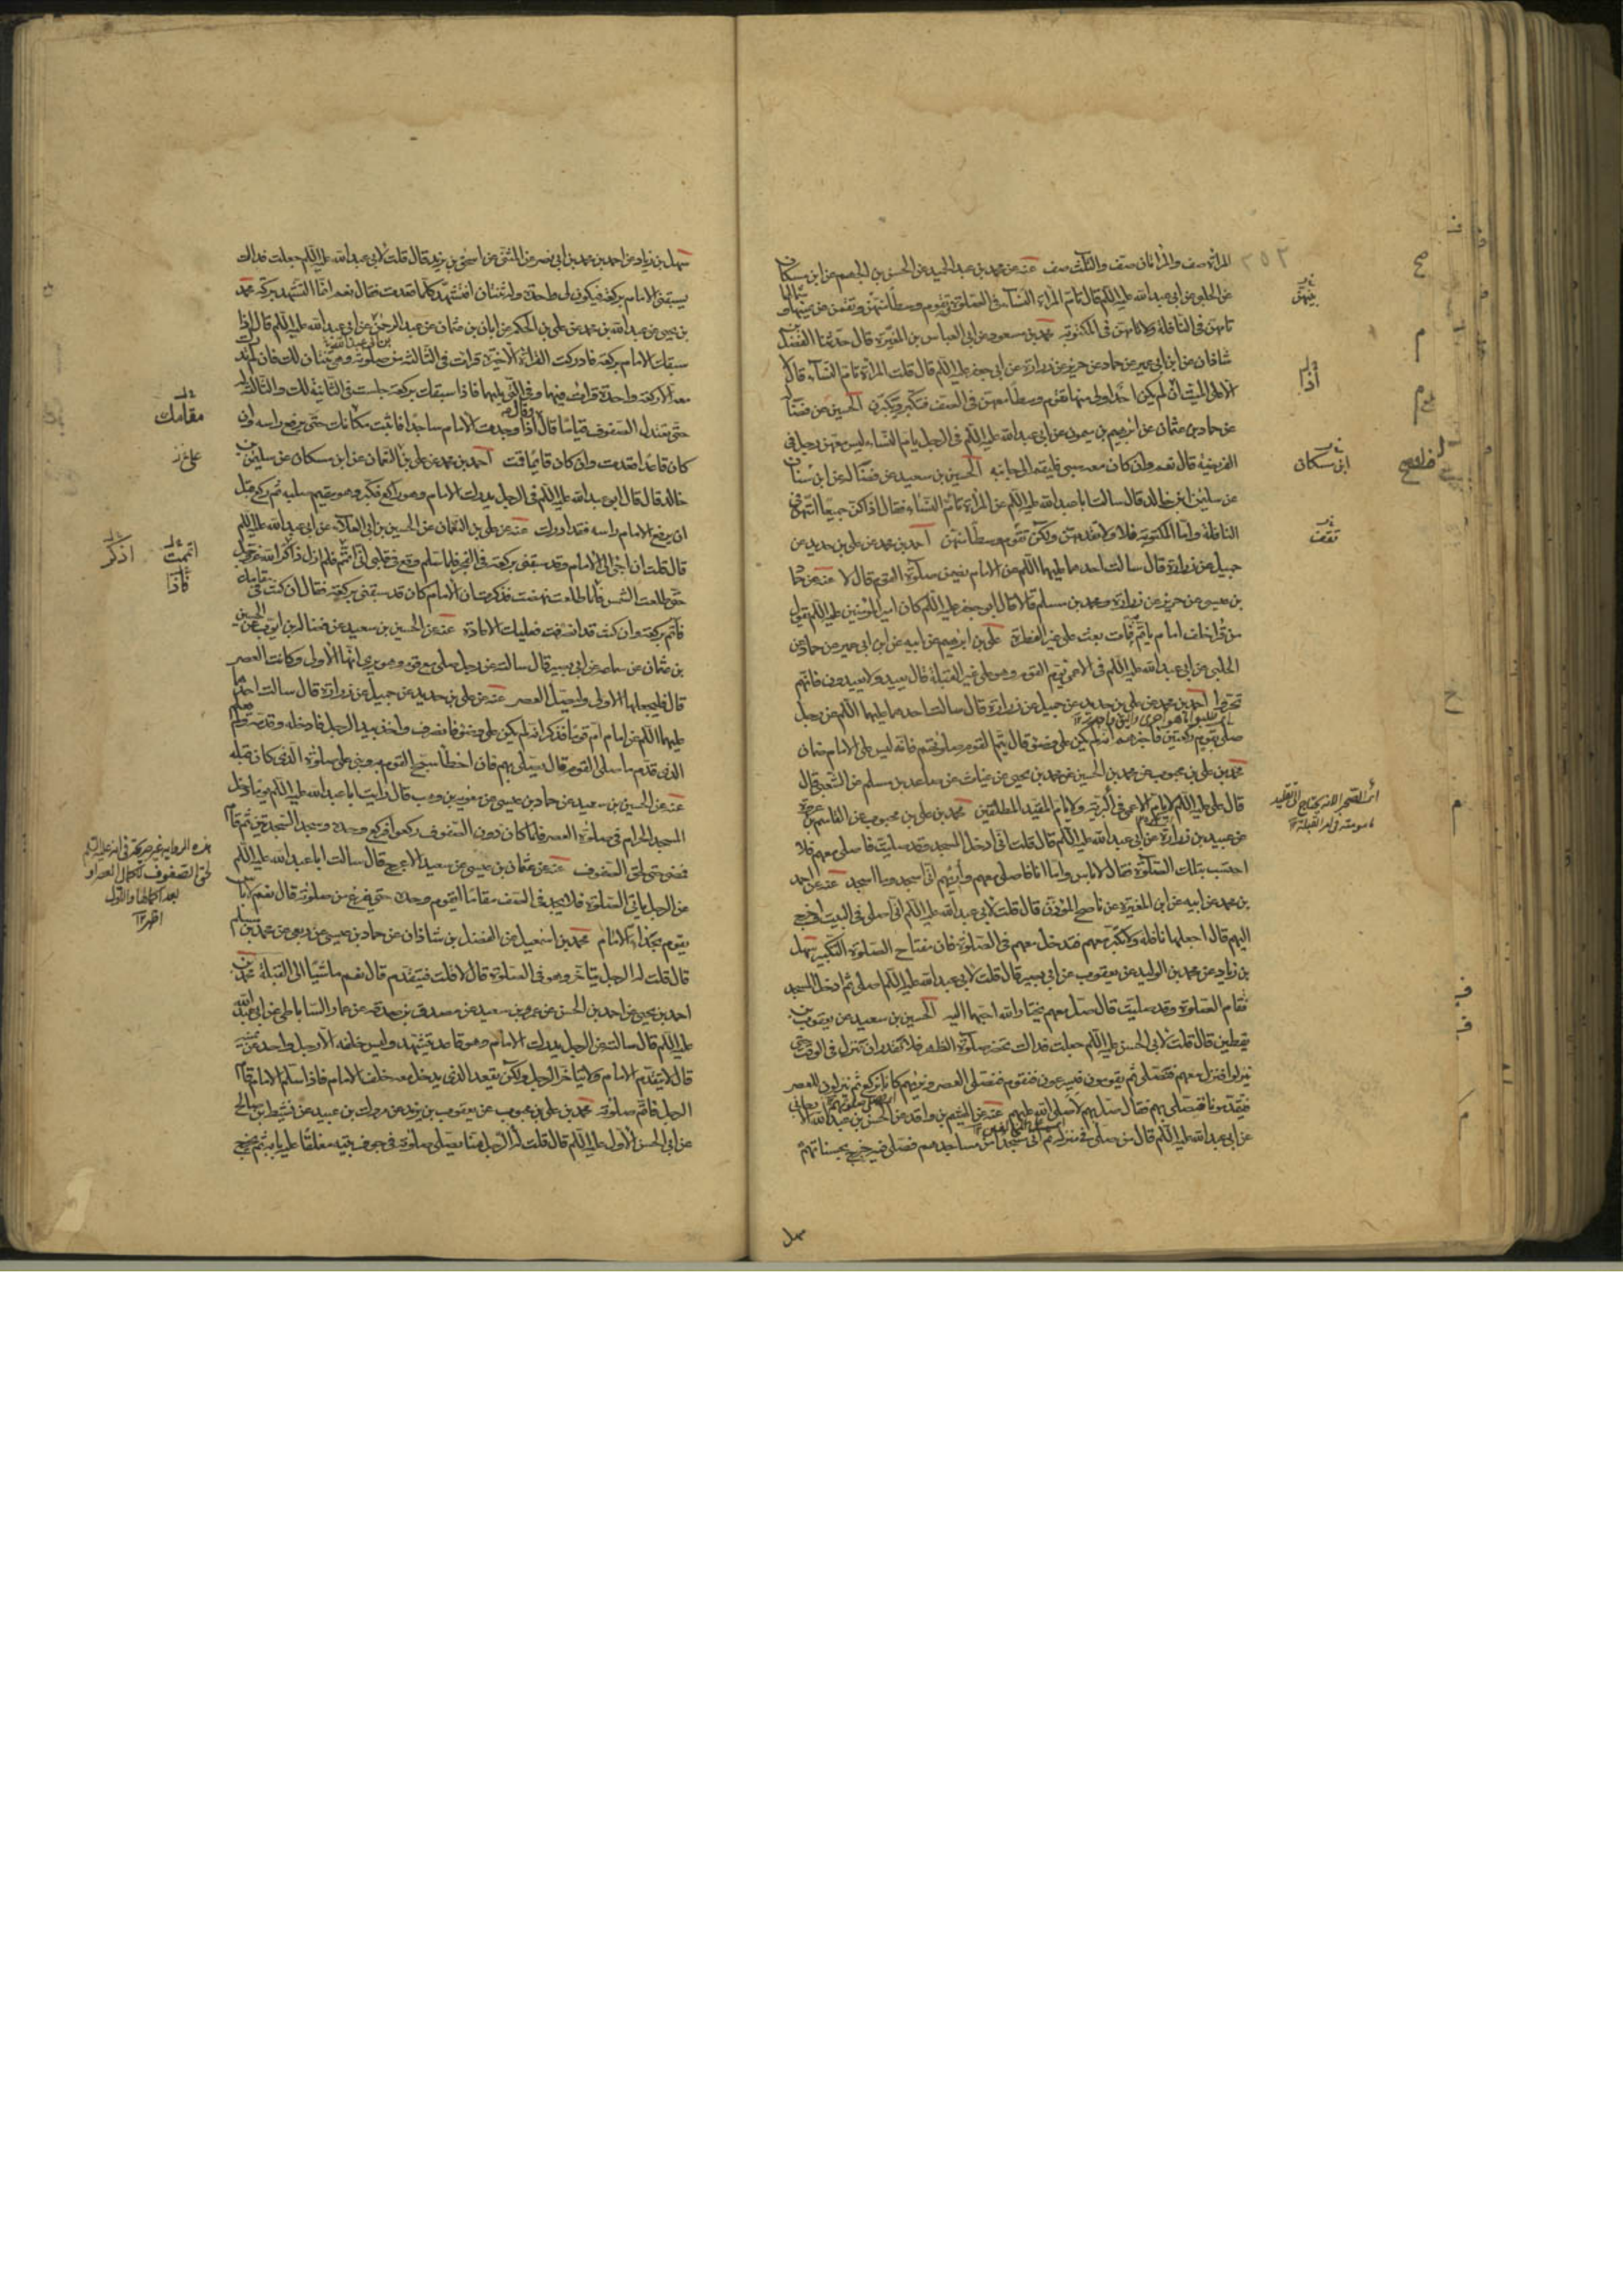 المراة صف والمراتان صف والثلث صف عنه عن محمد بن عبد الحميد عن الحسن بن الجهم عن ابن مسكان
عن الحلبي عن ابي عبد الله عليه السلم قال تؤم المراة النساء في الصلوة وتقوم وسطا بينهن ويقمن عن يمينها وشمالها
تؤمهن في النافلة ولا تؤمهن في المكتوبة محمد بن مسعود عن ابي العباس بن المغيرة قال حدثنا الفضل بن
شاذان عن ابن ابي عمير عن حماد عن حريز عن زرارة عن ابي جعفر عليه السلم قال قلت المراة تؤم النساء قال لا
الا على الميت اذا لم يكن احد اولى منها تقوم وسطا معهن في الصف فتكبر ويكبرن الحسين عن فضالة
عن حماد بن عثمان عن ابرهيم بن ميمون عن ابي عبد الله عليه السلم في الرجل يؤم النساء ليس معهن رجل في
الفريضة قال نعم وان كان معه صبي فليقم الى جانبه الحسين بن سعيد عن فضالة عن ابن سنان
عن سليمن ابن خالد قال سالت ابا عبد الله عليه السلم عن المراة تؤم النساء فقال اذا كن جميعا امتهن في
النافلة واما المكتوبة فلا ولا تقدمهن ولكن تقوم وسطا منهن احمد بن محمد عن علي بن حديد عن
جميل عن زرارة قال سالت احدهما عليهما السلم عن الامام يضمن صلوة القوم قال لا عنه عن حماد
بن عيسى عن حريز عن زرارة ومحمد بن مسلم قالا قال ابو جعفر عليه السلم كان امير المؤمنين عليه السلم يقول
من قرا خلف امام ياتم به فمات بعث على غير الفطرة علي بن ابرهيم عن ابيه عن ابن ابي عمير عن حماد عن
الحلبي عن ابي عبد الله عليه السلم في الاعمى يؤم القوم وهو على غير القبلة قال يعيد ولا يعيدون فانهم
تحروا احمد بن محمد عن علي بن حديد عن جميل عن زرارة قال سالت احدهما عليهما السلم عن رجل
صلى بقوم ركعتين فاخبرهم انه لم يكن على وضوء قال يتم القوم صلوتهم فانه ليس على الامام ضمان
محمد بن علي بن محبوب عن محمد بن الحسين عن محمد بن يحيى عن غياث عن صاعد بن مسلم عن الشعبي قال
قال علي عليه السلم لا يؤم الاعمى في البرية ولا يؤم المقيد المطلقين محمد بن علي بن محبوب عن القاسم بن عروة
عن عبيد بن زرارة عن ابي عبد الله عليه السلم قال قلت اني ادخل المسجد وقد صليت فاصلي معهم فلا
احتسب بتلك الصلوة فقال لا باس واما انا فاصلي معهم واريهم اني اسجد وما اسجد عنه عن احمد
بن محمد عن ابيه عن ابن المغيرة عن ناصح المؤذن قال قلت لابي عبد الله عليه السلم اني اصلي في البيت واخرج
اليهم قال اجعلها نافلة ولا تكبر معهم فتدخل معهم في الصلوة فان مفتاح الصلوة التكبير سهل
بن زياد عن محمد بن الوليد عن يعقوب عن ابي بصير قال قلت لابي عبد الله عليه السلم اصلي ثم ادخل المسجد
فتقام الصلوة وقد صليت قال صل معهم يختار الله احبهما اليه الحسين بن سعيد عن يعقوب بن
يقطين قال قلت لابي الحسن عليه السلم جعلت فداك تحضر صلوة الظهر فلا نقدر ان ننزل في الوقت حتى
ينزلوا فننزل معهم فنصلي ثم يقومون فيسرعون فنقوم فنصلي العصر ونريهم كانا نركع ثم ينزلون للعصر
فيقدمونا فنصلي بهم فقال صل بهم لا صلى الله عليهم عنه عن الهيثم بن واقد عن الحسن بن عبد الله الارجاني
عن ابي عبد الله عليه السلم قال من صلى في منزله ثم اتى مسجدا من مساجدهم فصلى فيه خرج بحسناتهم
بينهن
اذا
ابن مسكان
تقف
سهل
سهل بن زياد عن احمد بن محمد بن ابي نصر عن المثنى عن اسحق بن يزيد قال قلت لابي عبد الله عليه السلم جعلت فداك
يسبقني الامام بركعة فيكون لي واحدة وله ثنتان افتشهد كلما قعدت فقال نعم انما التشهد بركة محمد
بن يحيى عن عبد الله بن محمد عن علي بن الحكم عن ابان بن عثمان عن عبد الرحمن عن ابي عبد الله عليه السلم قال اذا
سبقك الامام بركعة فادركت القراءة الاخيرة قرات في الثالثة من صلوته وهي ثنتان لك فان لم تدرك
معه الا ركعة واحدة قرات فيها وفي التي يليها فاذا سبقك بركعة جلست في الثانية لك والثالثة له
حتى تعتدل الصفوف قياما قال اذا وجدت الامام ساجدا فاثبت مكانك حتى يرفع راسه وان
كان قاعدا قعدت وان كان قايما قمت احمد بن محمد عن علي بن النعمان عن ابن مسكان عن سليمن بن
خالد قال قال ابو عبد الله عليه السلم في الرجل يدرك الامام وهو راكع فكبر وهو مقيم صلبه ثم ركع قبل
ان يرفع الامام راسه فقد ادرك عنه عن علي بن النعمان عن الحسين بن ابي العلاء عن ابي عبد الله عليه السلم
قال قلت اني اجئ الى الامام وقد سبقني بركعة في الفجر فلما سلم وقع في قلبي اني اتممت فلم ازل ذاكرا لله عز وجل
حتى طلعت الشمس فلما طلعت نهضت فذكرت ان الامام كان قد سبقني بركعة فقال ان كنت في مقامك
فاتم بركعة وان كنت قد انصرفت فعليك الاعادة عنه عن الحسين بن سعيد عن فضالة بن ايوب عن الحسين
بن عثمان عن سماعة عن ابي بصير قال سالته عن رجل صلى مع قوم وهو يرى انها الاولى وكانت العصر
قال فليجعلها الاولى وليصل العصر عنه عن علي بن حديد عن جميل عن زرارة قال سالت احدهما
عليهما السلم عن امام ام قوما فذكر انه لم يكن على وضوء فانصرف واخذ بيد الرجل فادخله وقدمه ولم يعلم
الذي قدم ما صلى القوم قال يصلي بهم فان اخطا سبح القوم به وبنى على صلوة الذي كان قبله
عنه عن الحسين بن سعيد عن حماد بن عيسى عن معوية بن وهب قال رايت ابا عبد الله عليه السلم يوما دخل
المسجد الحرام في صلوة العصر فلما كان دون الصفوف ركعوا فركع وحده وسجد السجدتين ثم قام
فمضى حتى لحق الصفوف عنه عن عثمان بن عيسى عن سعيد الاعرج قال سالت ابا عبد الله عليه السلم
عن الرجل ياتي الصلوة فلا يجد في الصف مقاما ايقوم وحده حتى يفرغ من صلوته قال نعم لا باس
يقوم بحذاء الامام محمد بن اسمعيل عن الفضل بن شاذان عن حماد بن عيسى عن ربعي عن محمد بن مسلم
قال قلت له الرجل يتاخر وهو في الصلوة قال لا قلت فيتقدم قال نعم ماشيا الى القبلة محمد بن
احمد بن يحيى عن احمد بن الحسن عن عمرو بن سعيد عن مصدق بن صدقة عن عمار الساباطي عن ابي عبد الله
عليه السلم قال سالته عن الرجل يدرك الامام وهو قاعد يتشهد وليس خلفه الا رجل واحد عن يمينه
قال لا يتقدم الامام ولا يتاخر الرجل ولكن يقعد الذي يدخل معه خلف الامام فاذا سلم الامام قام
الرجل فاتم صلوته محمد بن علي بن محبوب عن يعقوب بن يزيد عن مروك بن عبيد عن نشيط بن صالح
عن ابي الحسن الاول عليه السلم قال قلت له الرجل منا يصلي صلوته في جوف بيته مغلقا عليه بابه ثم يخرج
مقامك
اتممت
اذكر
فاذا